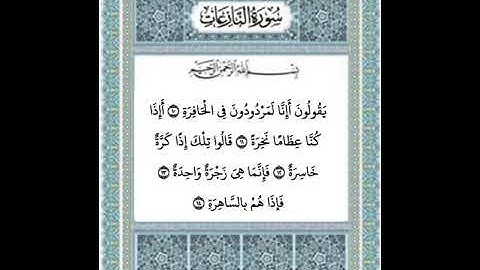 سُورَةُ النَّازِعَاتِ
بِسْمِ اللَّهِ الرَّحْمَٰنِ الرَّحِيمِ
يَقُولُونَ أَإِنَّا لَمَرْدُودُونَ فِي الْحَافِرَةِ ۝١٠ أَإِذَا
كُنَّا عِظَامًا نَخِرَةً ۝١١ قَالُوا تِلْكَ إِذًا كَرَّةٌ
خَاسِرَةٌ ۝١٢ فَإِنَّمَا هِيَ زَجْرَةٌ وَاحِدَةٌ ۝١٣
فَإِذَا هُمْ بِالسَّاهِرَةِ ۝١٤